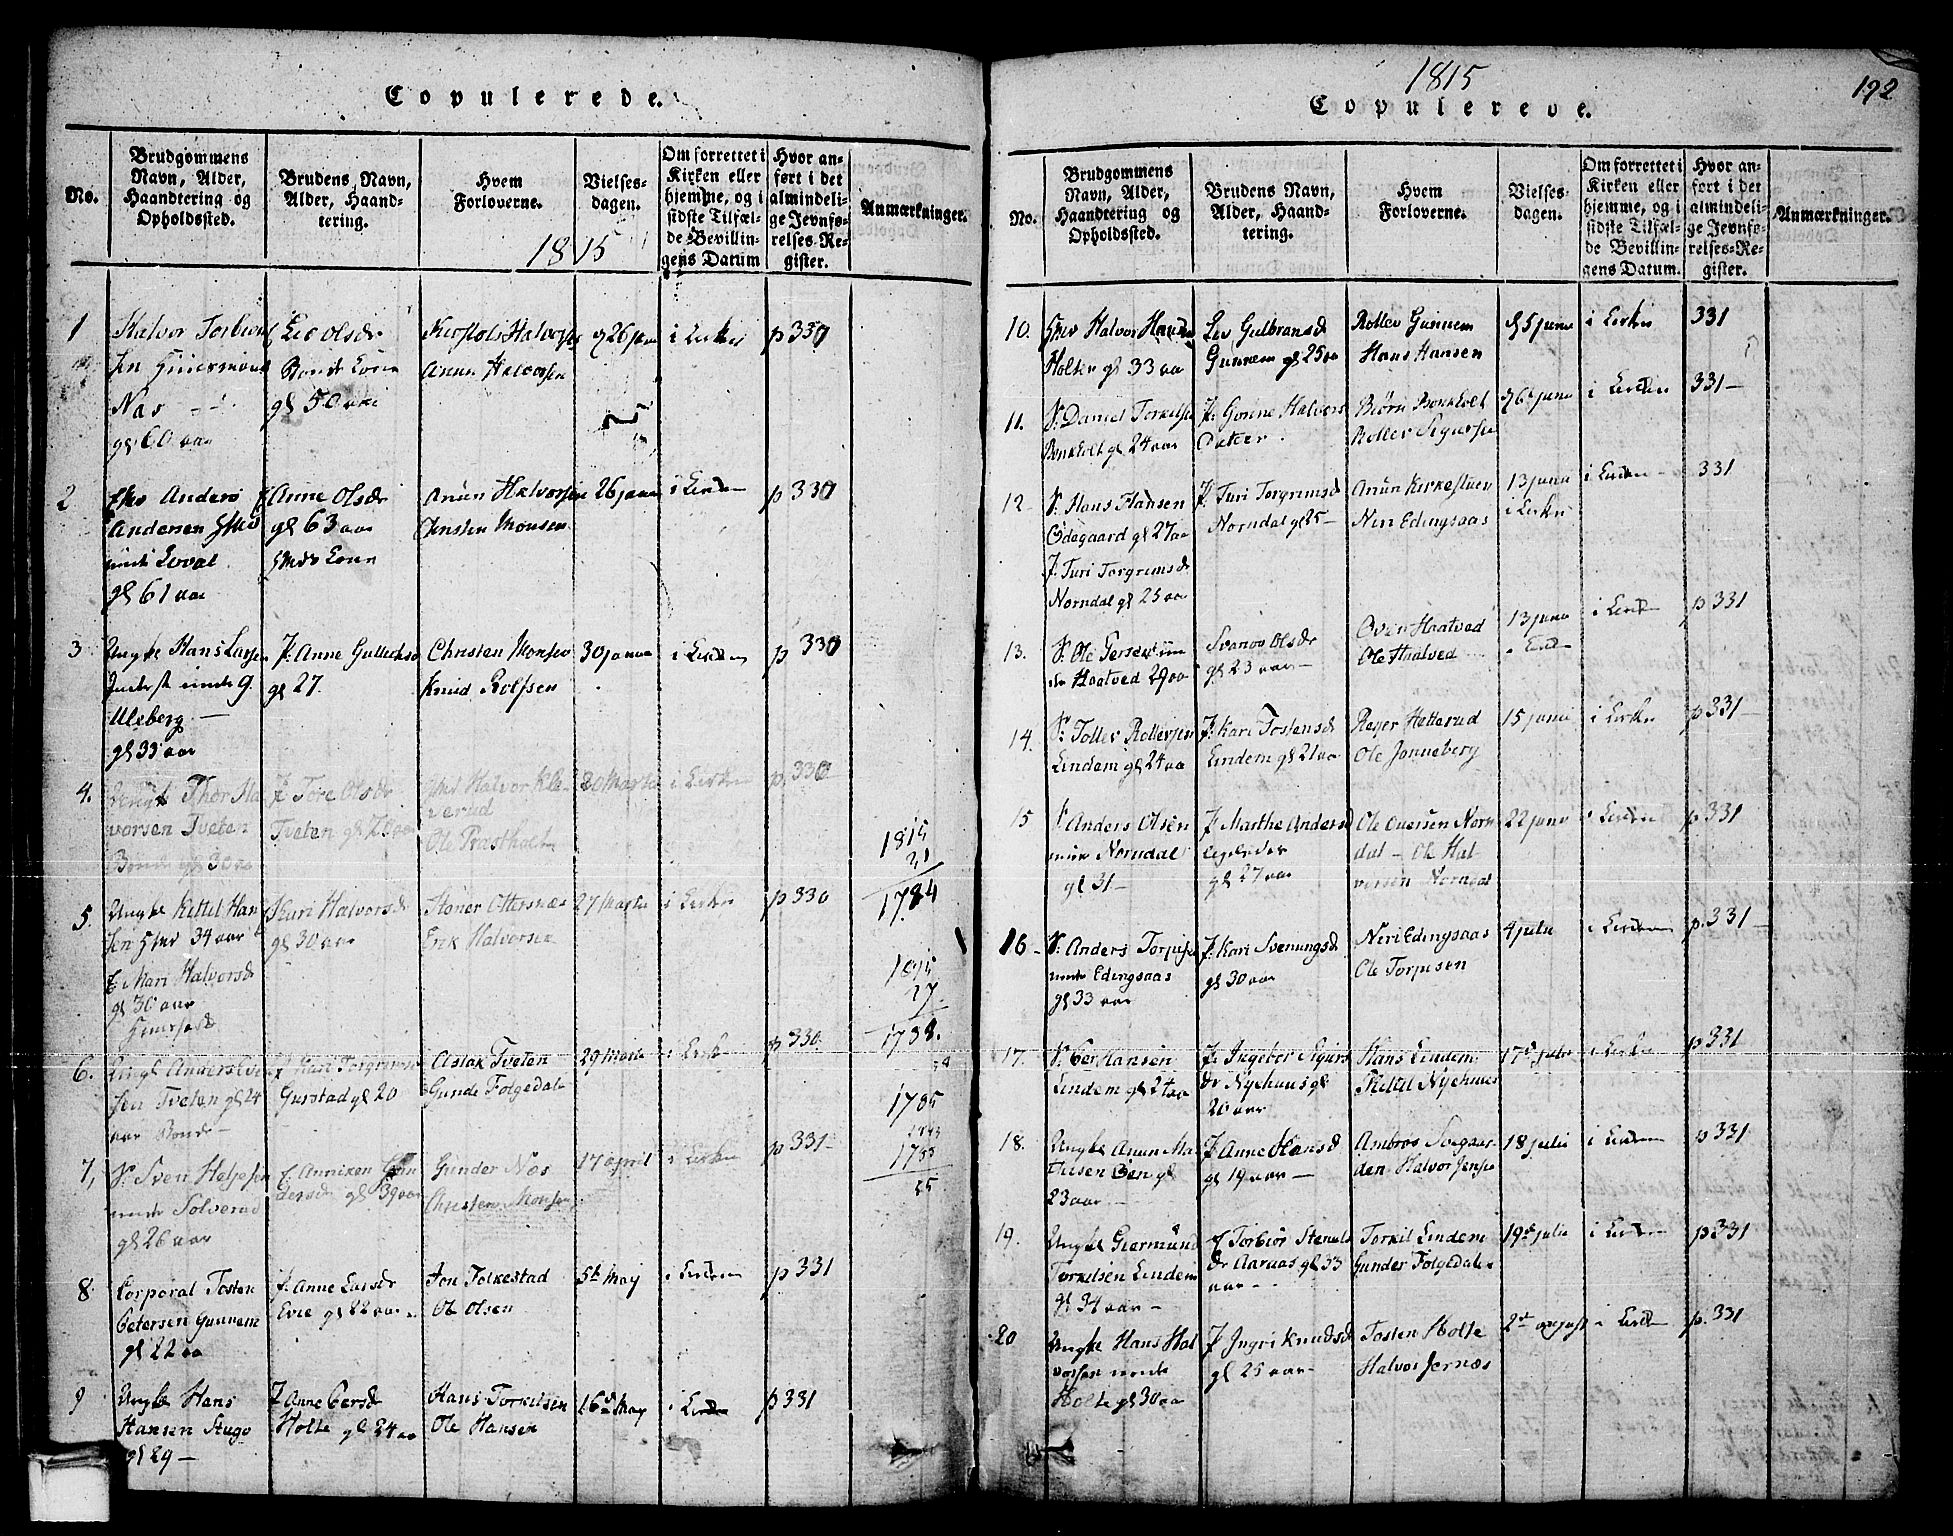 Copulerede.
No.
Brudgommens
Navn, Alder,
Haandtering og
Opholdssted.
Brudens Navn,
Alder, Haand-
tering.
Hvem
Forloverne.
Vielses-
dagen.
Om forrettet i
Kirken eller
hjemme, og i
sidste Tilfæl-
de Bevillin-
gens Datum
Hvor an-
ført i det
almindeli-
ge Jevnfø-
relses-Re-
gister.
Anmærkninger.
1815
1
Halvor Torbiorn
sen
Nas
gl 60 aar
Liv Olsdr
gl 50 aar
Halvorsen
Anun Halvorsen
26 janu
i Kirken
p 330
2
Anders
Andersen
gl 61 aar
Anne Olsdr
gl 63 aar
Anun Halvorsen
Christen Monsen
26 janu
i Kirken
p 330
3
Ungke Hans Larsen
Uleberg
gl 33 aar
P. Anne Gullechsd
gl 27.
Christen Monsen
Knud Rolfsen
30 janu
i Kirken
p 330
4.
Ungk Thor Ha
vorsen Tveten
Bonde gl 30 aa
P Tore Olsdr
Tveten
Halvor Kle
verud
Ole Prastholt
20 Martii
i Kirken
p. 330
5.
Ungke Kittil Han
sen 34 aar
P Mari Halvorsd
gl 30 aar
Kari Halvorsdr
gl 30 aar
Stoner Ottersnæs
Erik Halvorsen
27 Martii
i Kirken
p 330
6.
Tveten gl 24
aar Bonde
Kari Torgrimsd
Gusstad gl 20
Aslak Tveten
Gunde Folgedal
29 Marti
i Kirken
p 330
7,
Sven Helgesen
Solverud
gl 26 aar
P. Anniken Gun
dersd gl 39 aar
Gunder Nos
Christen Monsen
17 april
i Kirken
p 331
8.
Corporal Tosten
Petersen Gunnem
gl 22 aa
P. Anne Larsdr
Evie gl 22 aar
Jon Folkestad
Ole Olsen
5te May
i Kirken
p 331
9
Ungke Hans
Hansen Stugo
gl 29 —
P Anne Persd
Holte gl 24 aa
Hans Torkilsen
Ole Hansen
16d May
i Kirken
p 331
1815
31
1784
1815
27
1788.
1785
1785
Copulerede.
1815
192
No.
Brudgommens
Navn, Alder,
Haandtering og
Opholdssted.
Brudens Navn,
Alder, Haand-
tering.
Hvem
Forloverne.
Vielses-
dagen.
Om forrettet i
Kirken eller
hjemme, og i
sidste Tilfæl-
de Bevillin-
gens Datum.
Hvor an-
ført i det
almindeli-
ge Jevnfø-
relses-Re-
gister.
Anmærkninger.
10.
Halvor Hansen
Holten gl 33 aa
Liv Gulbransd
Gunnem gl 25 aa
Rollev Gunnem
Hans Hansen
5 juni
i Kirken
331
11.
Daniel Torkilsen
Bonkholt gl 24 aar
P. Gonne Halvors
Biørn Bonkholt
Rollev Sigursen
6 juni
i Kirken
331 —
12
Hans Hansen
Odegaard gl 27 aa
P. Turi Torgrimsd
Norndal gl 25 aa
P. Turi Torgrimsd
Norndal gl 25 —
Anun Kirkestuen
Neri Edingsaas
13 juni
i Kirken
i Kirken
331
13.
Haatved 29 aa
Svanos Olsdr
gl 23 aar —
Oven Haatved
Ole Haatved
13 juni
i Kirken
p 331
14.
Tollev Rollevsen
Lindem gl 24 aa
P. Kari Tostensd
Lindem gl 21 aa
Roger Hetterud
Ole Jonneberg
15 juni
i Kirken
p 331 —
15
Anders Olsen
Norndal
gl 31 —
P Marthe Andersd
gl 27 aar
Ole Oversen Norn
dal — Ole Hal
vorsen Norndal
22 juni
i Kirken
p. 331
16 —
Anders Torjusen
Edingsaas
gl 33 aar
P. Kari Svenungsd
gl 30 aar
Neri Edingsaas
Ole Torjusen
4 julii
i Kirken
p. 331 —
17.
Per Hansen
Lindem gl 24 aa
P. Ingebor Sigurs
dr Nyehuus gl
20 aar
Hans Lindem
Kittil Nyehuus
17d julii
i Kirken
p 331
18.
Ungke Anun Ma
thisen Bøen gl
23 aar —
P Anne Hansd
gl 19 aar —
Ambros Svegaar
den. Halvor Jensen
18 julii
i Kirken
p 331
19.
Ungke Giermund
Torkilsen Lindem
gl 34 aar —
P Torbiør Stenuls
dr Aarnas gl 33
aar —
Torkil Lindem
Gunder Folgedalen
19d julii
i Kirken
p 331
20
Ungke Hans Hal
vorsen
Holte gl 30 aa
P Ingri Knudsd
gl 25 aar —
Tosten Holte
Halvor Jernæs
2d august
i Kirken
p. 331